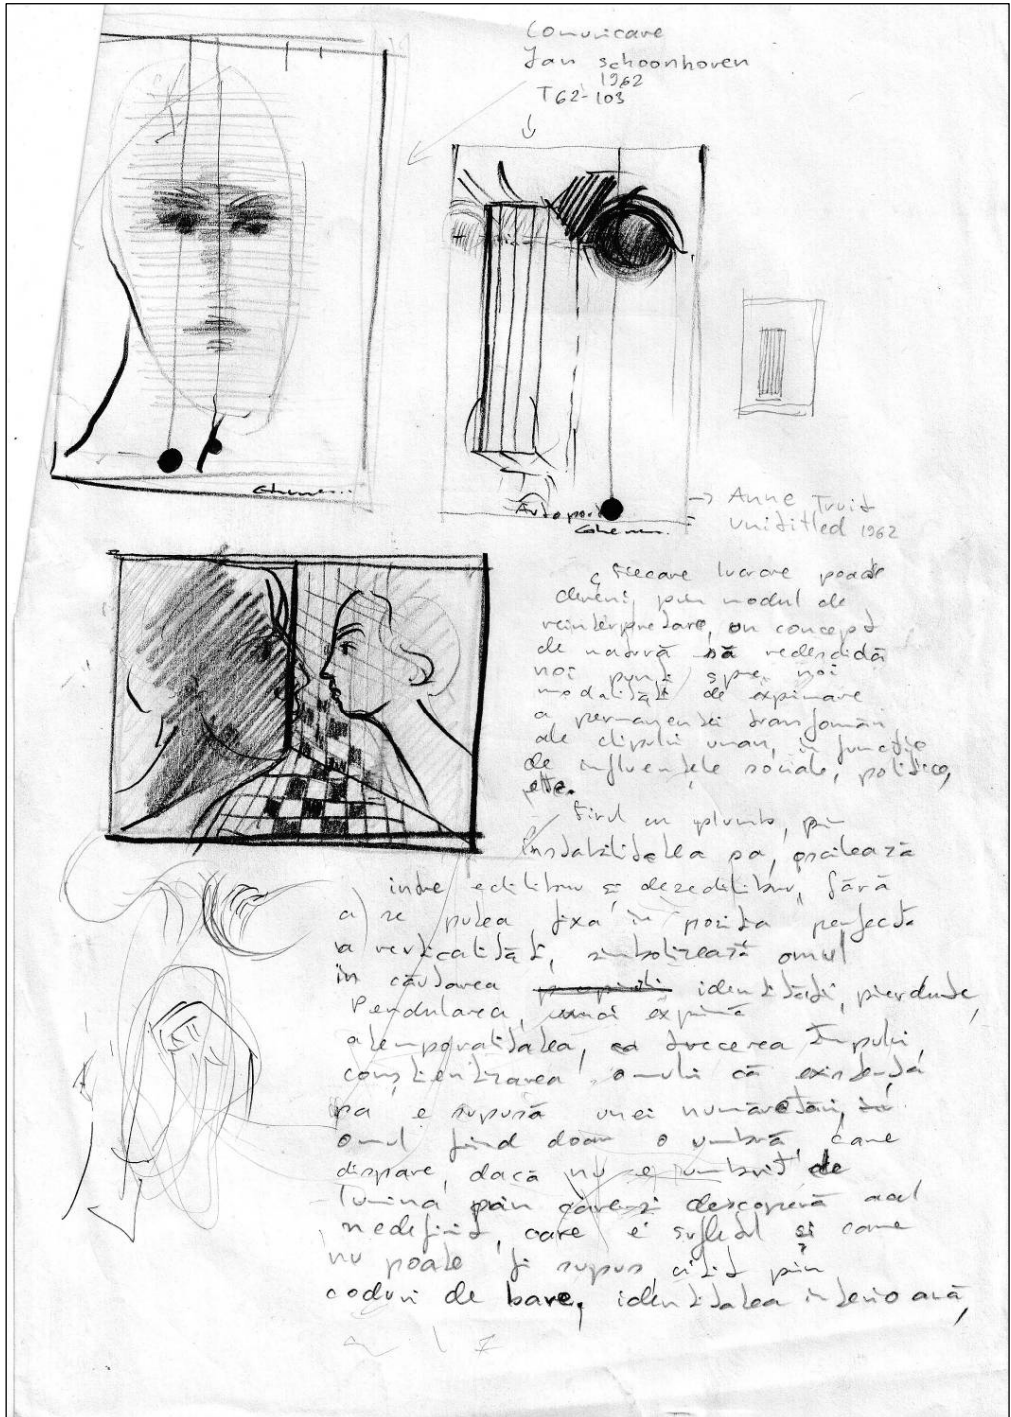 Comunicare
Jan Schoonhoven
1962
T62-103
Autoport
→ Anne Truit
Unititled 1962
fiecare lucrare poate
deveni, prin modul de
reinterpretare, un concept
de natură să redeschidă
noi punți spre noi
modalități de expimare
a permanenței transfomări
ale chipului uman, în funcție
de influențele sociale, politice,
etc.
firul cu plumb, prin
instabilitatea sa, oscilează
între echilibru și dezechilibru, fără
a se putea fixa în poziția perfectă
a verticalității, simbolizează omul
în căutarea identității, pierdute,
Pendularea, exprimă
atemporalitatea, ca trecerea timpului,
conștientizarea omului că existența
sa e supusă unei numărători,
omul fiind doar o umbră care
dispare, dacă nu e umbrit de
lumina prin care-și descoperă acel
nedefinit, care e sufletul și care
nu poate fi supus, citit prin
coduri de bare, identitatea interioară,